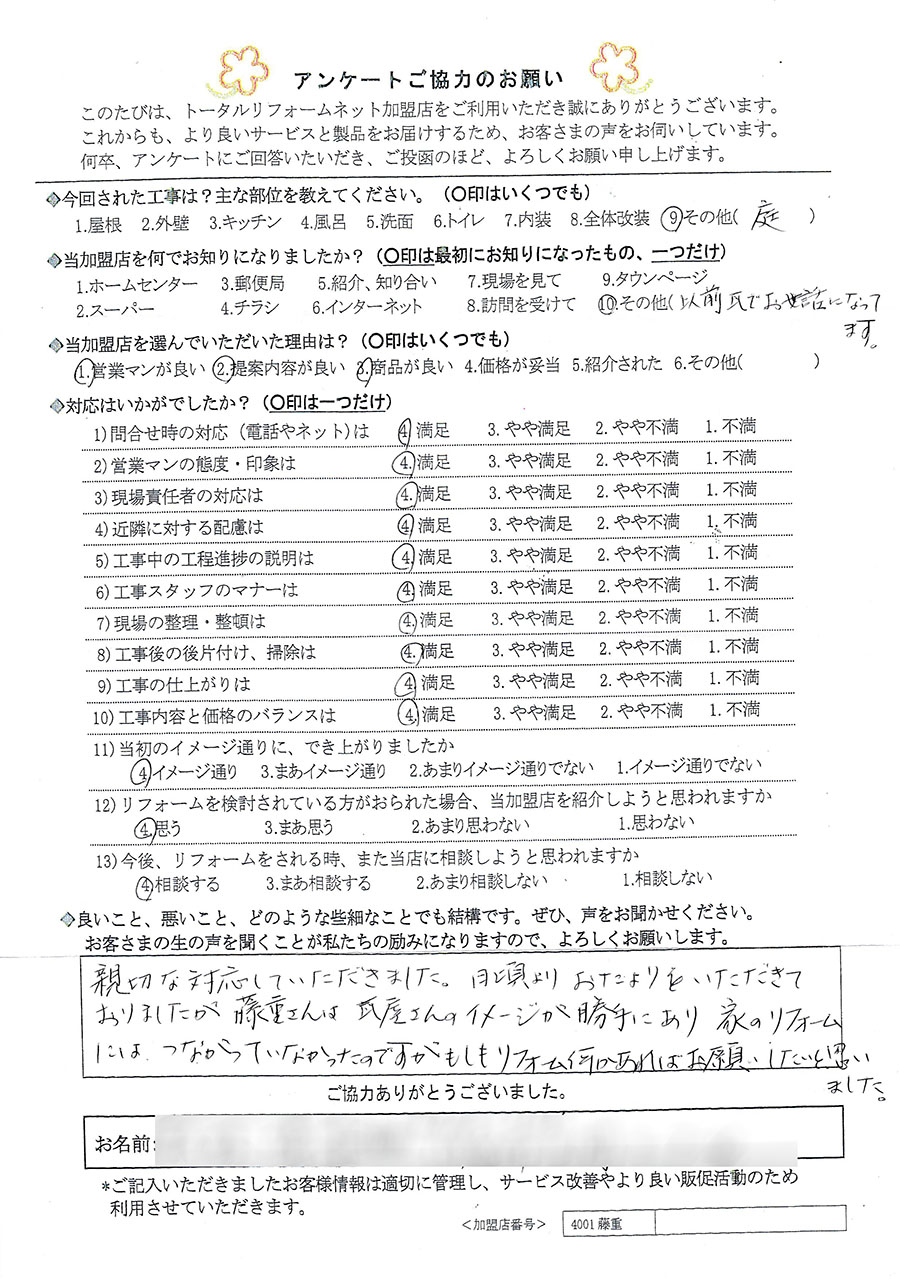 アンケートご協力のお願い
このたびは、トータルリフォームネット加盟店をご利用いただき誠にありがとうございます。
これからも、より良いサービスと製品をお届けするため、お客さまの声をお伺いしています。
何卒、アンケートにご回答いたいだき、ご投函のほど、よろしくお願い申し上げます。
◆今回された工事は？主な部位を教えてください。（〇印はいくつでも）
1.屋根 2.外壁 3.キッチン 4.風呂 5.洗面 6.トイレ 7.内装 8.全体改装 ⑨その他( 庭 )
◆当加盟店を何でお知りになりましたか？（〇印は最初にお知りになったもの、一つだけ）
1.ホームセンター 3.郵便局 5.紹介、知り合い 7.現場を見て 9.タウンページ
2.スーパー 4.チラシ 6.インターネット 8.訪問を受けて ⑩その他( 以前瓦でお世話になって
ます。
◆当加盟店を選んでいただいた理由は？（〇印はいくつでも）
①営業マンが良い ②提案内容が良い ③商品が良い 4.価格が妥当 5.紹介された 6.その他( )
◆対応はいかがでしたか？（〇印は一つだけ）
1)問合せ時の対応（電話やネット）は ④満足 3.やや満足 2.やや不満 1.不満
2)営業マンの態度・印象は ④満足 3.やや満足 2.やや不満 1.不満
3)現場責任者の対応は ④満足 3.やや満足 2.やや不満 1.不満
4)近隣に対する配慮は ④満足 3.やや満足 2.やや不満 1.不満
5)工事中の工程進捗の説明は ④満足 3.やや満足 2.やや不満 1.不満
6)工事スタッフのマナーは ④満足 3.やや満足 2.やや不満 1.不満
7)現場の整理・整頓は ④満足 3.やや満足 2.やや不満 1.不満
8)工事後の後片付け、掃除は ④満足 3.やや満足 2.やや不満 1.不満
9)工事の仕上がりは ④満足 3.やや満足 2.やや不満 1.不満
10)工事内容と価格のバランスは ④満足 3.やや満足 2.やや不満 1.不満
11)当初のイメージ通りに、でき上がりましたか
④イメージ通り 3.まあイメージ通り 2.あまりイメージ通りでない 1.イメージ通りでない
12)リフォームを検討されている方がおられた場合、当加盟店を紹介しようと思われますか
④思う 3.まあ思う 2.あまり思わない 1.思わない
13)今後、リフォームをされる時、また当店に相談しようと思われますか
④相談する 3.まあ相談する 2.あまり相談しない 1.相談しない
◆良いこと、悪いこと、どのような些細なことでも結構です。ぜひ、声をお聞かせください。
お客さまの生の声を聞くことが私たちの励みになりますので、よろしくお願いします。
親切な対応していただきました。日頃より おたよりをいただきて
おりましたが 藤重さんは 瓦屋さんのイメージが 勝手にあり 家のリフォーム
には、つながっていなかったのですがもしもリフォーム何かあればお願いしたいと思い
ました。
ご協力ありがとうございました。
お名前:
*ご記入いただきましたお客様情報は適切に管理し、サービス改善やより良い販促活動のため
利用させていただきます。
＜加盟店番号＞ 4001藤重